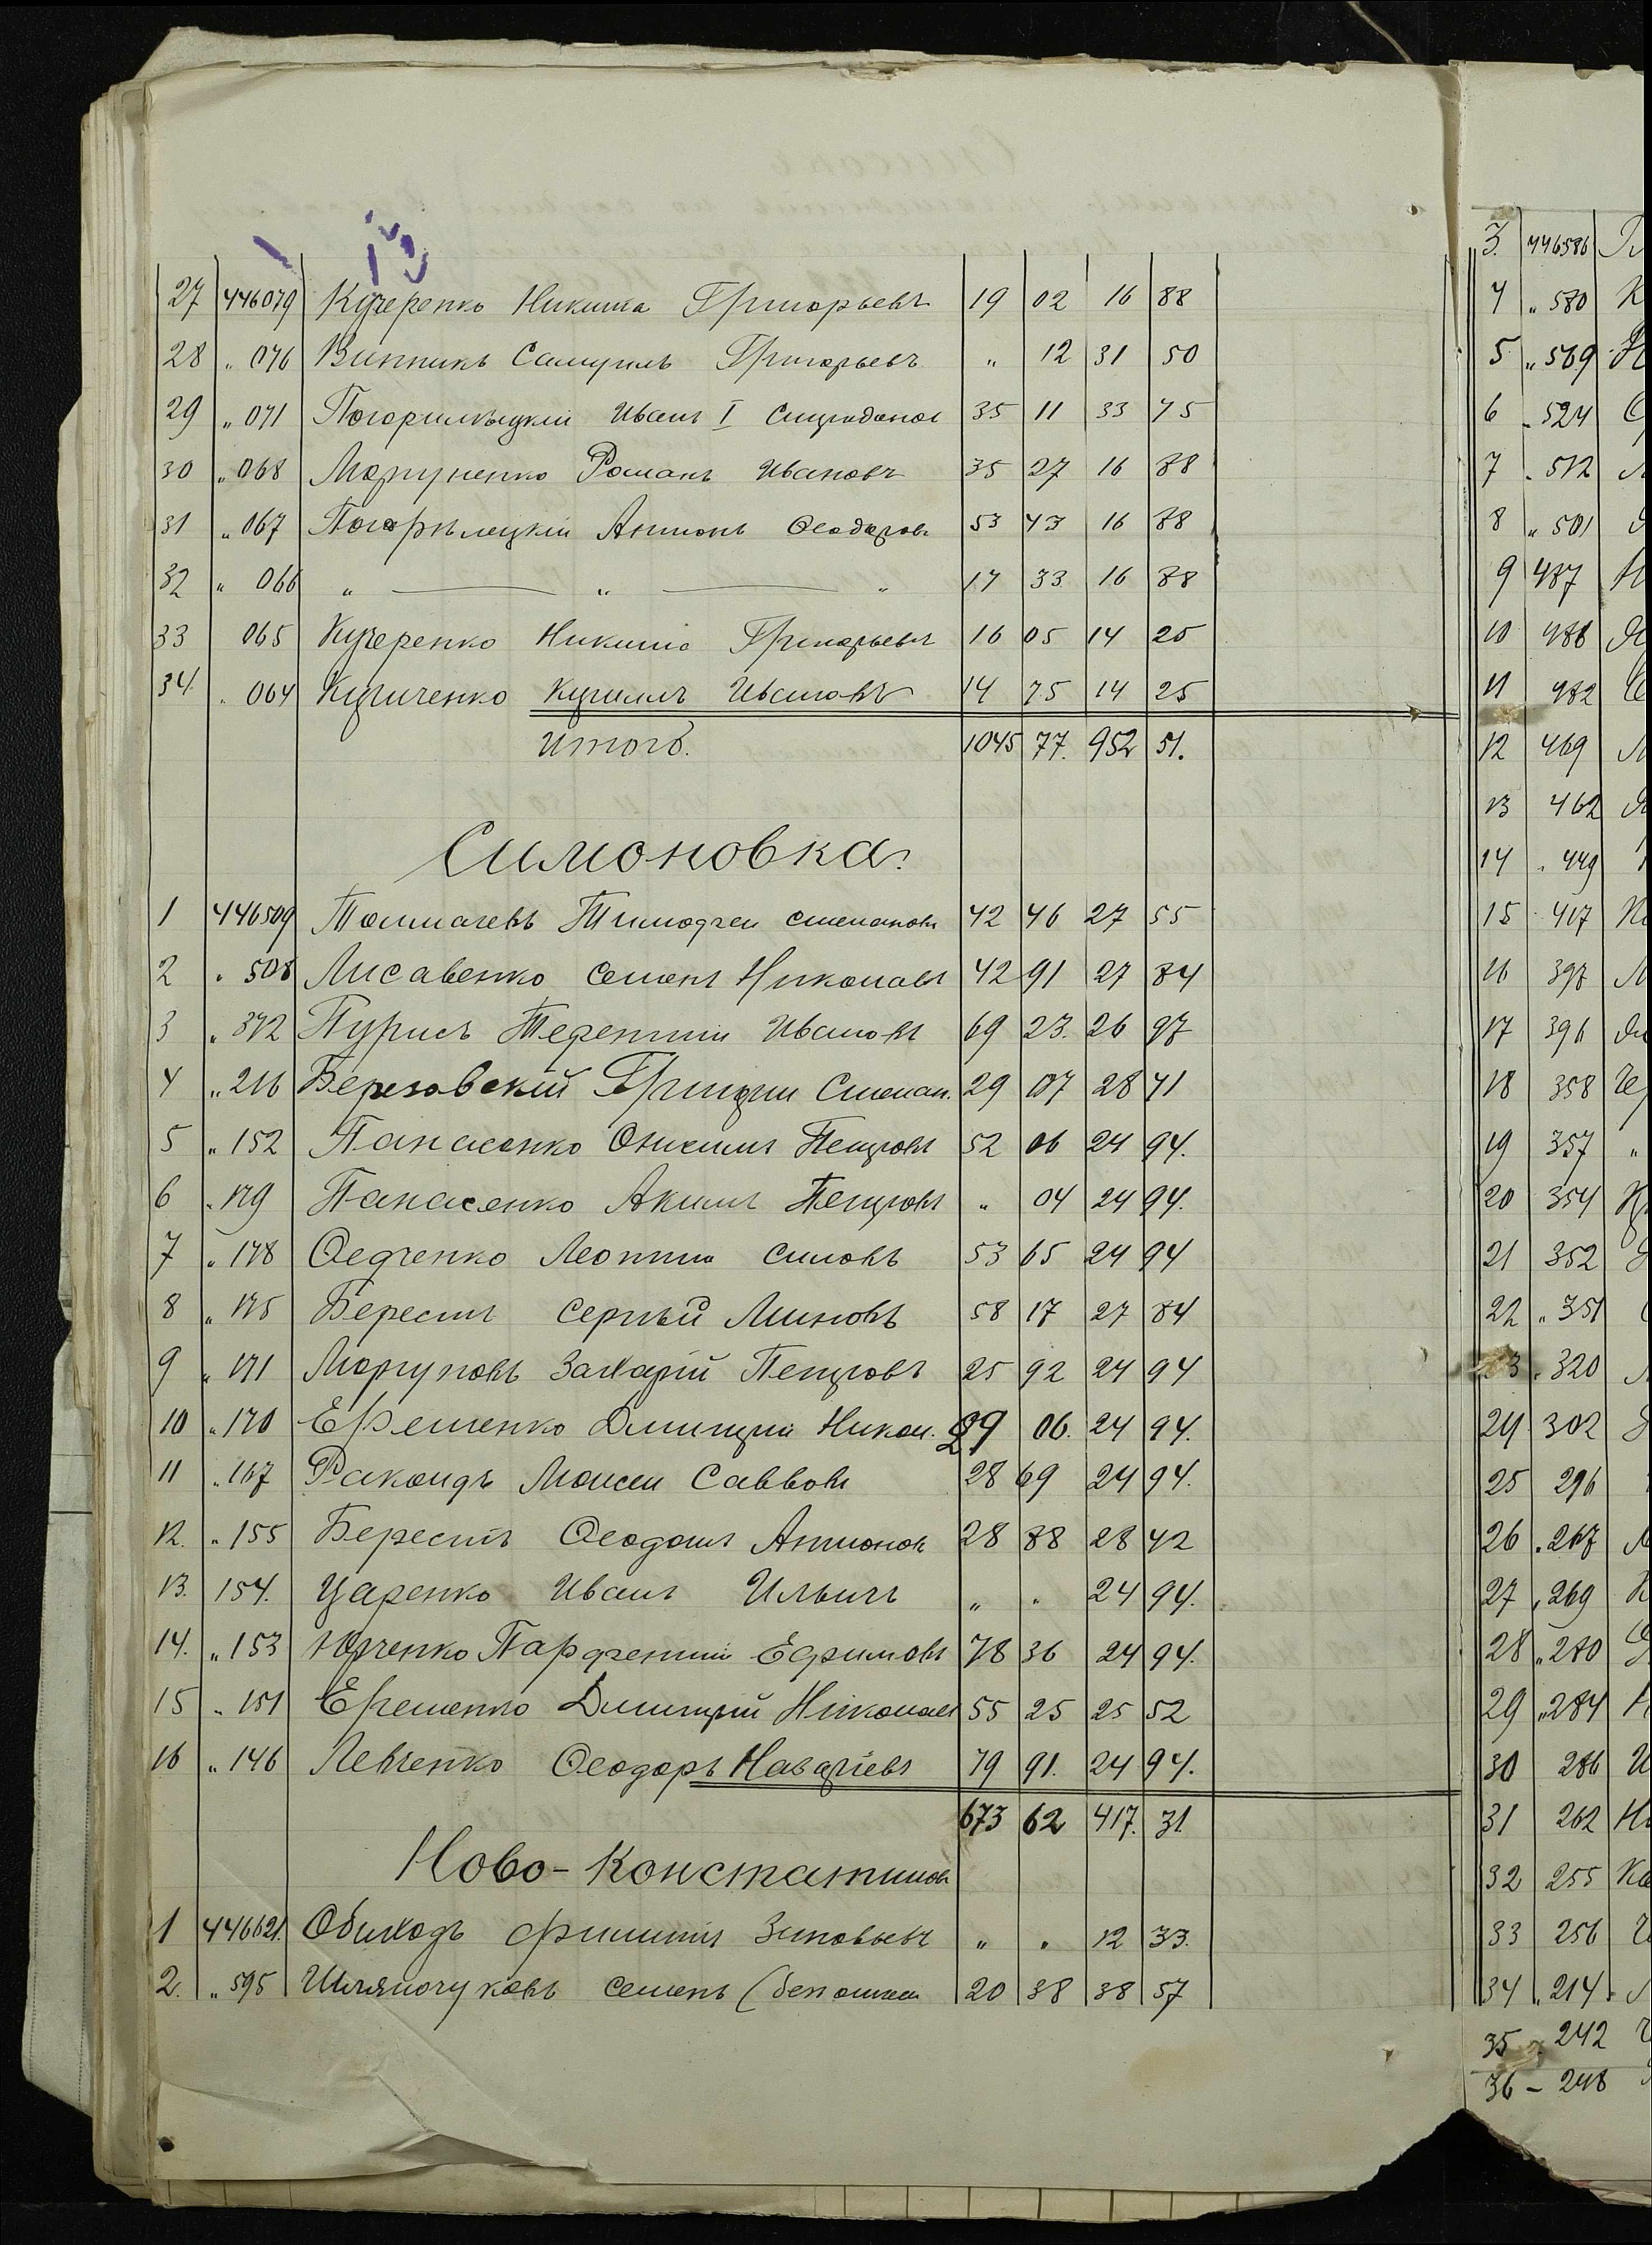 27 446079 Кучеренко Никита Григорьевъ 19 02 16 88
28 " 076 Винникъ Самуилъ Григорьевъ " 12 31 50
29 " 071 Иванъ I 35 11 33 75
30 " 068 Моргуненко Романъ Ивановъ 35 27 16 88
31 " 067 Погорѣлецкій Антонъ Ѳеодоров 53 43 16 88
32 " 066 " — " — " 17 33 16 88
33 065 Кучеренко Никита Григорьевъ 16 05 14 25
34 " 064 Кириченко Кириллъ Ивановъ 14 75 14 25
Итого. 1045 77. 952 51.
Симоновка.
1 446509 Толмачевъ Тимофей Степановъ 42 46 27 55
2 " 508 Лисавенко Семенъ Николаевъ 42 91 27 84
3 " 372 Пурисъ Терентій Ивановъ 69 23. 26 97
4 " 216 Березовскій Григорій Степан. 29 07 28 41
5 " 152 Панасенко Онисимъ Петровъ 52 06 24 94.
6 " 179 Панасенко Акимъ Петровъ " 04 24 94.
7 " 178 Ѳедченко Леонтій Силовъ 53 65 24 94
8 " 175 Берестъ Сергѣй Миновъ 58 17 27 84
9 " 171 Моргуновъ Захарій Петровъ 25 92 24 94
10 " 170 Ерешенко Дмитрій Никол. 29 06. 24 94.
11 " 167 Ракоидъ Моисей Саввовъ 28 69 24 94.
12. " 155 Берестъ Антонов 28 88 28 42
13. 154. Царенко Иванъ Ильичъ " " 24 94.
14. " 153 Юрченко Парфентій Ефимовъ 78 36 24 94.
15 " 151 Ерешенко Дмитрій Николаев 55 25 25 52
16 " 146 Левченко Ѳеодоръ Назарьевъ 79 91. 24 94.
673 62 417. 31
Ново-Константинов
1 446621. Обиходъ Филиппъ Зиновьевъ " " 12 33.
2. " 595 Семенъ 20 38 38 57
3. 446586
4 " 580
5 " 569
6 " 524
7 " 512
8 " 501
9 487
10 486
11 482
12 469
13 462
14 " 449
15 417
16 397
17 396
18 358
19 357 "
20 354
21 352
22 " 351
23 " 320
24 302
25 296
26 " 267
27 " 269
28 " 280
29 " 284
30 286
31 262
32 255
33 256
34 " 214
35 242
36 – 248